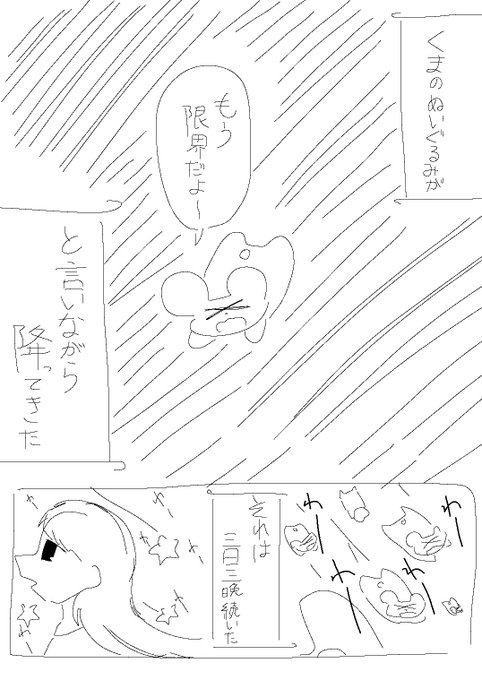 くまのぬいぐるみが
もう
限界だよ～
と言いながら
降ってきた
わー
わー
わー
わー
それは
三日三晩続いた
わー
わー
わー
わー